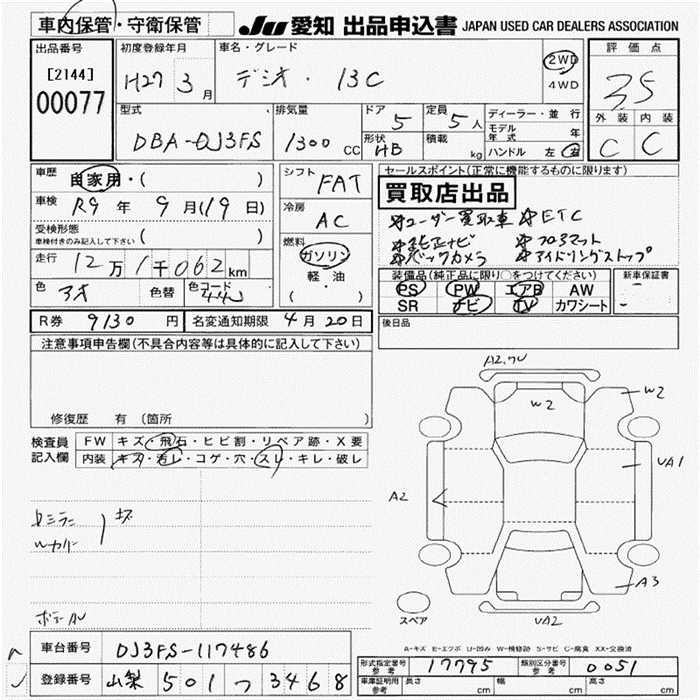 車内保管・守衛保管
JU 愛知 出品申込書 JAPAN USED CAR DEALERS ASSOCIATION
出品番号
[2144]
00077
初度登録年月
H27 3 月
車名・グレード
デミオ・13C
2WD
4WD
評価点
3.5
外装 内装
C C
型式
DBA-DJ3FS
排気量
1300 CC
ドア
5
形状
HB
定員
5 人
積載
kg
ディーラー・並行
モデル年式 年
ハンドル 左 右
車歴
自家用・( )
車検
R9 年 9 月(19 日)
受検形態
車検付きのみ記入して下さい ( )
走行
12 万 1 千 062 km
色
アオ
色替
色コード
44J
シフト
FAT
冷房
AC
燃料
ガソリン
軽・油
( )
セールスポイント(正常に機能するものに限ります)
買取店出品
ユーザー買取車 ETC
純正ナビ フロアマット
バックカメラ アイドリングストップ
装備品(純正品に限り○をつけてください)
PS PW エアB AW
SR ナビ TV カワシート
新車保証書
後日品
R券 9130 円
名変通知期限 4 月 20 日
注意事項申告欄(不具合内容等は具体的に記入して下さい)
修復歴 有 (箇所
検査員
記入欄
FW キズ・飛石・ヒビ割・リペア跡・X要
内装 キズ・汚レ・コゲ・穴・スレ・キレ・破レ
キズ
A2,ワレ
W2
W2
UA1
A2
A3
UA2
スペア
A-キズ E-エクボ U-凹み W-補修跡 S-サビ C-腐食 XX-交換済
車台番号 DJ3FS-117486
登録番号 山梨 501 つ 3468
形式指定番号 参考 17795
類別区分番号 参考 0051
車庫証明用 参考 長さ cm 幅 cm 高さ cm